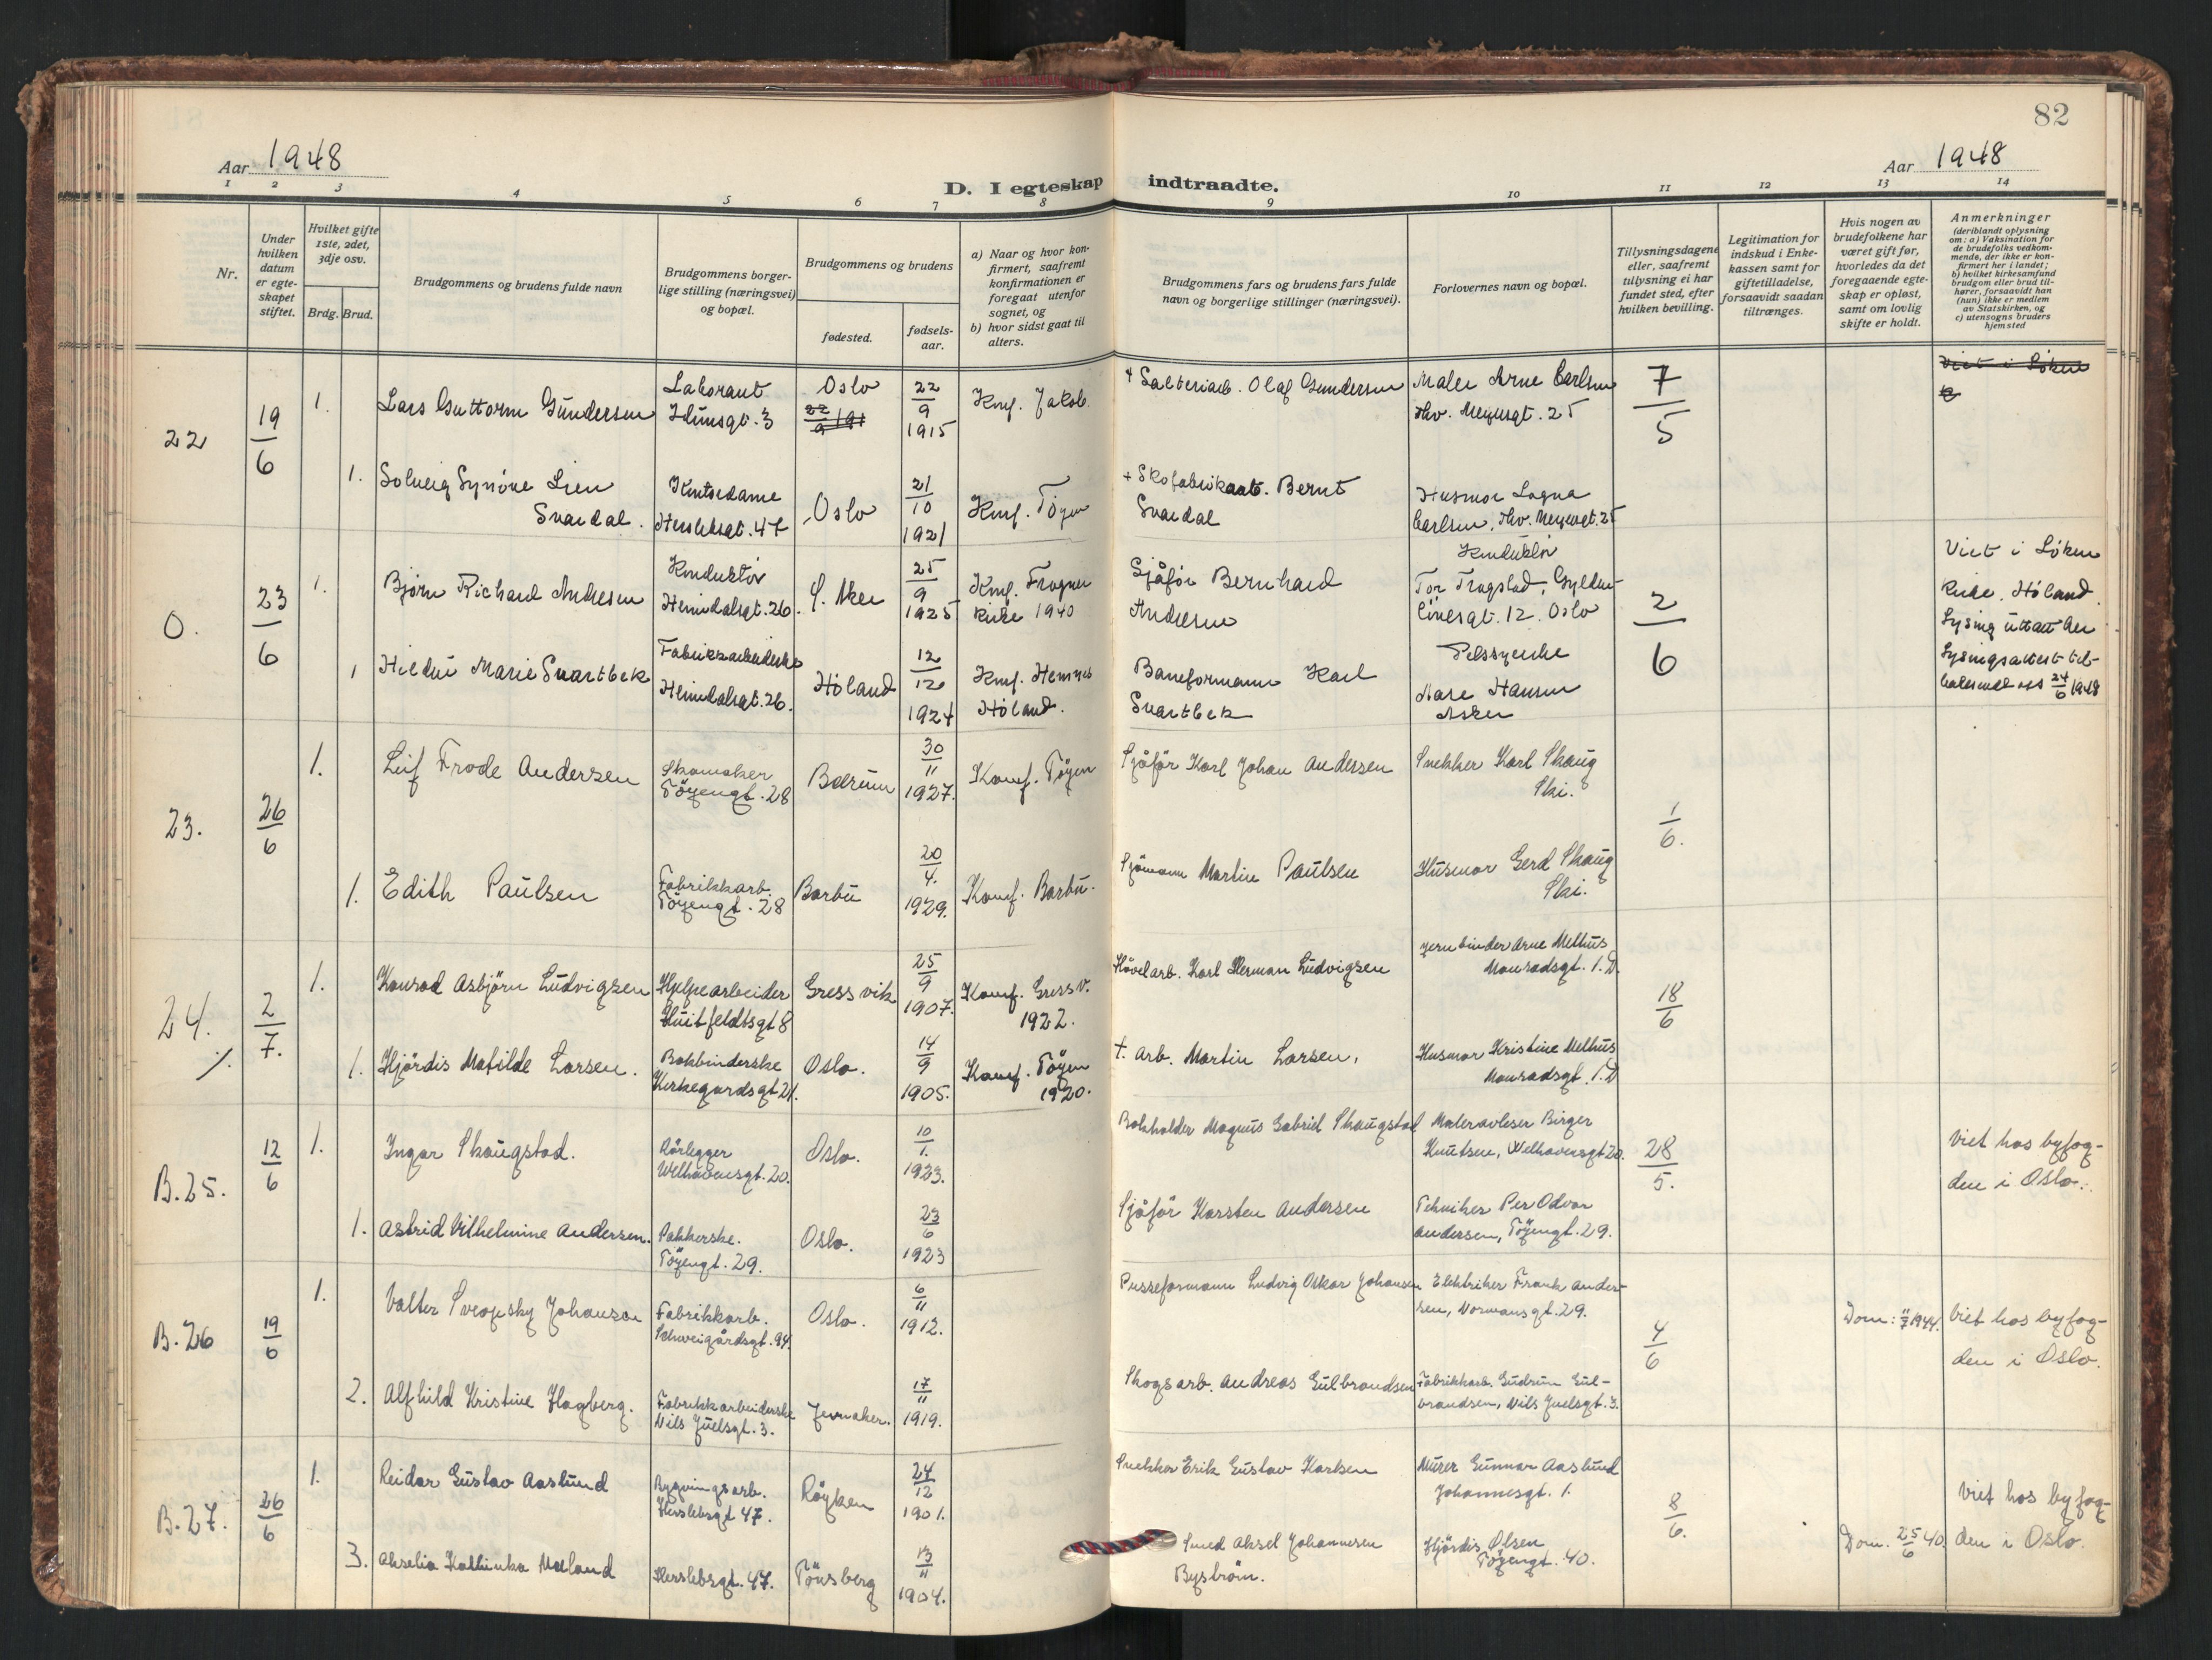 82
Aar 1948
Aar 1948
D. I egteskap indtraadte.
1 2 3 4 5 6 7 8 9 10 11 12 13 14
Nr.
Under hvilken datum er egteskapet stiftet.
Hvilket gifte 1ste, 2det, 3dje osv.
Brdg. Brud.
Brudgommens og brudens fulde navn
Brudgommens borgerlige stilling (næringsvei) og bopæl.
Brudgommens og brudens
fødested.
fødselsaar.
a) Naar og hvor konfirmert, saafremt konfirmationen er foregaat utenfor sognet, og
b) hvor sidst gaat til alters.
Brudgommens fars og brudens fars fulde navn og borgerlige stillinger (næringsvei).
Forlovernes navn og bopæl.
Tillysningsdagene eller, saafremt tillysning ei har fundet sted, efter hvilken bevilling.
Legitimation for indskud i Enkekassen samt for giftetilladelse, forsaavidt saadan tiltrænges.
Hvis nogen av brudefolkene har været gift før, hvorledes da det foregaaende egteskap er opløst, samt om lovlig skifte er holdt.
Anmerkninger (deriblandt oplysning om: a) Vaksination for de brudefolks vedkommende, der ikke er konfirmert her i landet; b) hvilket kirkesamfund brudgom eller brud tilhører, forsaavidt han (hun) ikke er medlem av Statskirken, og c) utensogns bruders hjemsted
22 19/6 1. Lars Guttorm Gundersen Laborant Idunsgt. 3 Oslo 22/9 1915 Konf. Jakob. + Salteriarb. Olaf Gundersen Maler Arne Carlsen Thv. Meyersgt. 25 7/5 Viet i Löken
1. Solveig Synöve Lien Svardal. Herslebsgt. 47 Oslo 21/10 1921 Konf. Töyen + Skofabrikarb. Bernt Svardal Husmor Lagna Carlsen, Thv. Meyersgt. 25
0. 23/6 1. Bjørn Richard Andresen Konduktör Heimdalsgt. 26. Ø. Aker 25/9 1925 Konf. Frogner kirke 1940 Sjåför Bernhard Andresen Konduktör Tor Trogstad, Gyldenlövesgt. 12. Oslo 2/6 Viet i Löken kirke. Höland.
1 Hildur Marie Svartbek Fabrikkarbeiderske Heimdalsgt. 26. Höland 12/12 1924 Konf. Hemnes Höland. Baneformann Karl Svartbek Pelssyerske Aase Hansen Asker Lysingsattest 24/6 1948
23. 26/6 1. Leif Frode Andersen Skomaker Töyengt. 28 Bærum 30/11 1927. Konf. Töyen Sjåför Karl Johan Andersen Snekker Karl Skaug Ski. 1/6.
1. Edith Paulsen Fabrikkarb. Töyengt. 28 Barbu 20/4. 1929. Konf. Barbu. Sjömann Martin Paulsen Husmor Gerd Skaug Ski.
24. 2/7. 1. Konrad Asbjörn Ludvigsen Hjelpearbeider Huitfeldtsgt 8 Gressvik 25/9 1907. Konf. Gressv. 1922. Hövelarb. Karl Herman Ludvigsen Jernbinder Arne Melhus Monradsgt. 1.D. 18/6
1. Hjördis Matilde Larsen. Bokbinderske Kirkegardsgt 21. Oslo. 14/9 1905. Konf. Töyen 1920. †. Arb. Martin Larsen. Husmor Kristine Melhus Monradsgt. 1.D
B.25. 12/6 1. Ingar Skaugstad. Rörlegger Welhavensgt. 20. Oslo. 10/1. 1923. Bokholder Magnus Gabriel Skaugstad Maleravleser Birger Knutsen, Welhavensgt 20. 28/5. Viet hos byfogden i Oslo.
1. Astrid Vilhelmine Andersen. Pakkerske. Töyengt. 29. Oslo. 23/6 1923 Sjåför Karsten Andersen Tekniker Per Odvar Andersen, Töyengt. 29.
B.26 19/6 1. Valter Johansen Fabrikkarb. Schweigårdsgt. 94. Oslo. 6/11 1912. Pusseformann Ludvig Oskar Johansen Elektriker Frank Andersen, Normansgt. 29. 4/6 Dom: 1944. Viet hos byfogden i Oslo.
2. Alfhild Kristine Hagberg. Fabrikkarbeiderske Nils Juelsgt. 3. Jevnaker. 17/11 1919. Skogsarb. Andreas Gulbrandsen Fabrikkarb. Gudrun Gulbrandsen, Nils Juelsgt. 3.
B.27. 26/6 1. Reidar Gustav Aaslund Bygningsarb. Herslebsgt 47. Röyken 24/12 1901. Snekker Erik Gustav Karlsen Murer Gunnar Aaslund Johannesgt. 1. 8/6. Viet hos byfogden i Oslo.
3. Akselia Kathinka Mæland Herslebsgt. 47. Tönsberg 13/11 1904. Smed Aksel Johannesen Byström. Hjördis Olsen Töyengt. 40. Dom. 25/6 40.